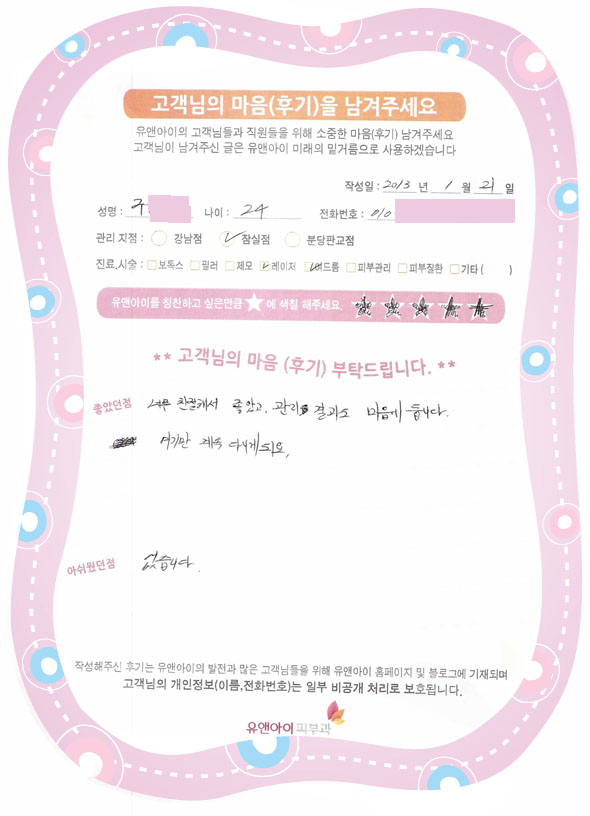 고객님의 마음(후기)을 남겨주세요
유앤아이의 고객님들과 직원들을 위해 소중한 마음(후기) 남겨주세요
고객님이 남겨주신 글은 유앤아이 미래의 밑거름으로 사용하겠습니다
작성일 : 2013 년 1 월 21 일
성명 : 주 나이 : 24 전화번호 : 010
관리 지점 : 강남점 잠실점 분당판교점
진료,시술 : 보톡스 필러 제모 레이저 여드름 피부관리 피부질환 기타 ( )
유앤아이를 칭찬하고 싶은만큼 ★ 에 색칠 해주세요.
** 고객님의 마음 (후기) 부탁드립니다. **
좋았던점 너무 친절해서 좋았고, 관리 결과도 마음에 듭니다.
여기만 계속 다니게 되요.
아쉬웠던점 없습니다.
작성해주신 후기는 유앤아이의 발전과 많은 고객님들을 위해 유앤아이 홈페이지 및 블로그에 기재되며
고객님의 개인정보(이름,전화번호)는 일부 비공개 처리로 보호됩니다.
유앤아이피부과